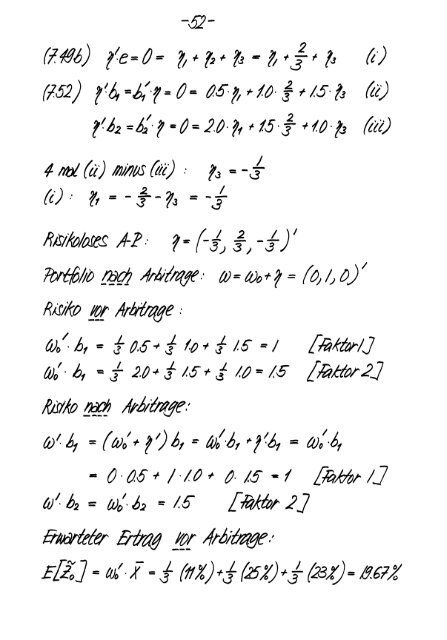 -52-
(7.49b) η'·e = 0 = η₁ + η₂ + η₃ = η₁ + 2/3 + η₃ (i)
(7.52) η'·b₁ = b₁'·η = 0 = 0.5·η₁ + 1.0·2/3 + 1.5·η₃ (ii)
η'·b₂ = b₂'·η = 0 = 2.0·η₁ + 1.5·2/3 + 1.0·η₃ (iii)
4 mal (ii) minus (iii) : η₃ = -1/3
(i) : η₁ = -2/3 - η₃ = -1/3
Risikoloses A-P: η = (-1/3, 2/3, -1/3)'
Portfolio nach Arbitrage: ω = ω₀ + η = (0, 1, 0)'
Risiko vor Arbitrage :
ω₀'·b₁ = 1/3 0.5 + 1/3 1.0 + 1/3 1.5 = 1 [Faktor 1]
ω₀'·b₂ = 1/3 2.0 + 1/3 1.5 + 1/3 1.0 = 1.5 [Faktor 2]
Risiko nach Arbitrage:
ω'·b₁ = (ω₀' + η') b₁ = ω₀'·b₁ + η'·b₁ = ω₀'·b₁
= 0·0.5 + 1·1.0 + 0·1.5 = 1 [Faktor 1]
ω'·b₂ = ω₀'·b₂ = 1.5 [Faktor 2]
Erwarteter Ertrag vor Arbitrage:
E[Z̃₀] = ω₀'·X̄ = 1/3 (11%) + 1/3 (25%) + 1/3 (23%) = 19.67%